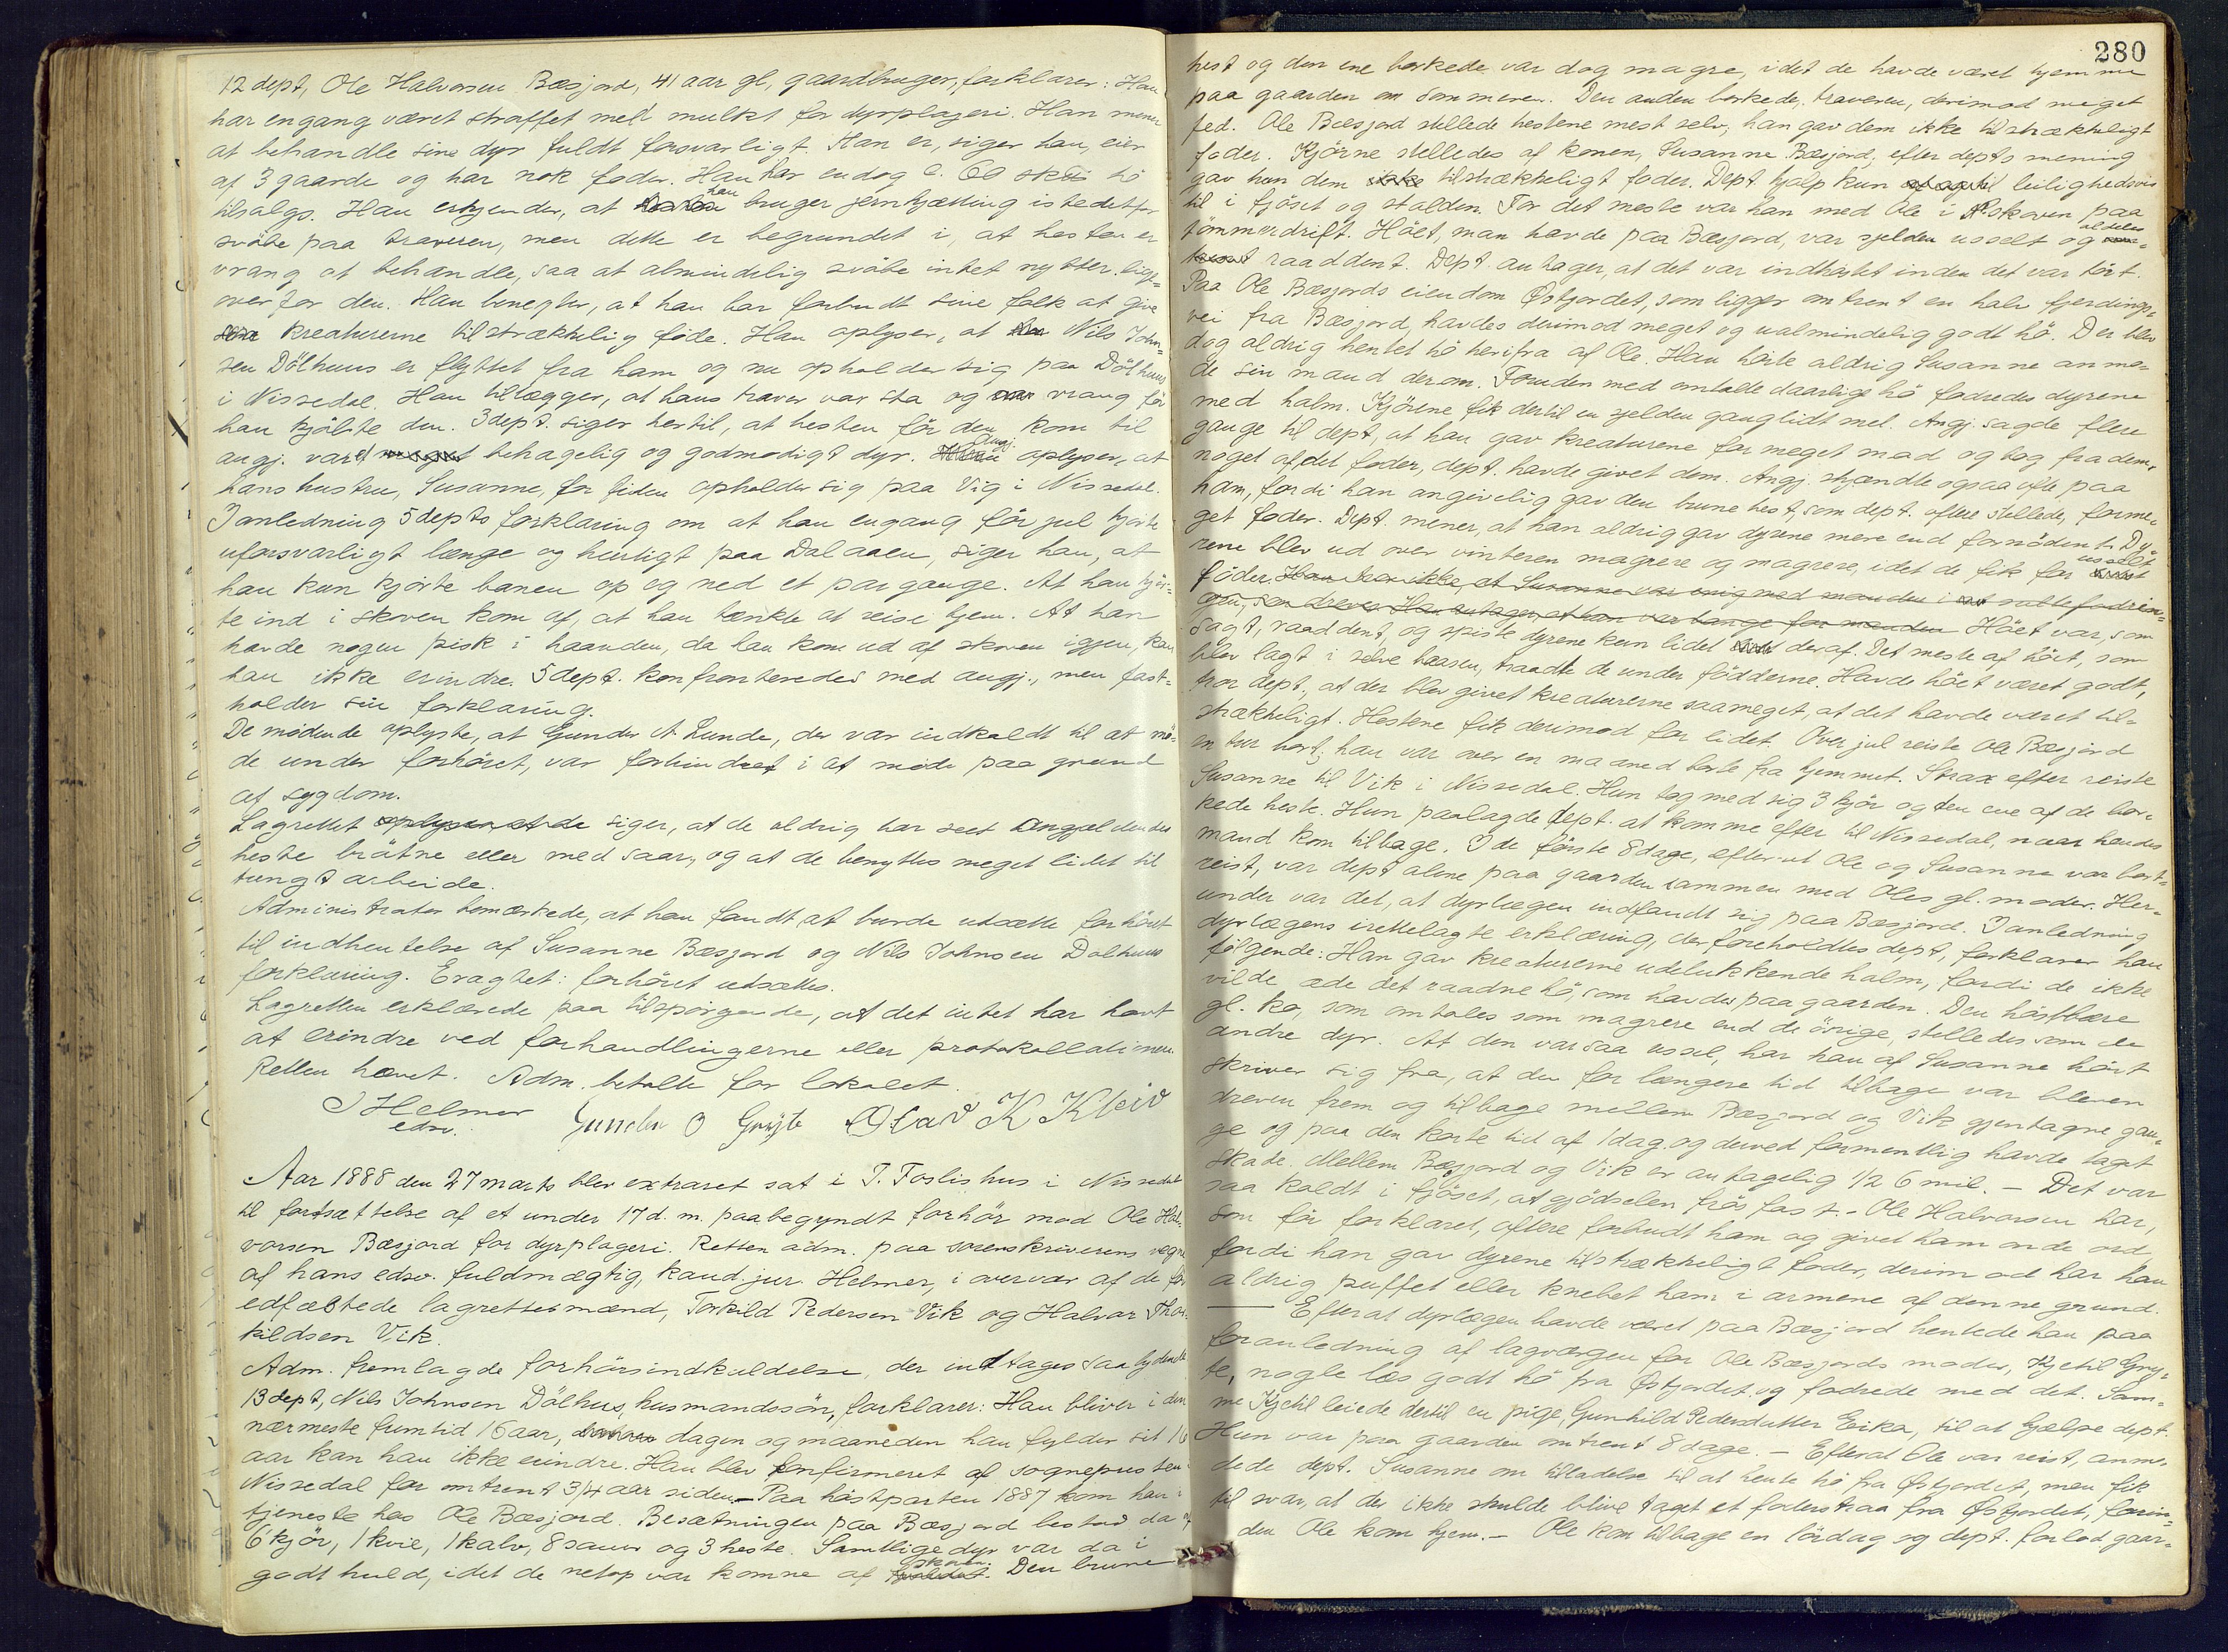 12 dept, Ole Halvorsen Bæsjord, 41 aar gl, gaardbruger, forklarer: Han
har engang været straffet med mulkt for dyrplageri. Han mener
at behandle sine dyr fuldt forsvarligt. Han er, siger han, eier
af 3 gaarde og har nok foder. Han har endog hö
tilsalgs. Han erkjender, at han bruger jernkjætting istedetfor
svöbe paa traveren, men dette er begrundet i, at hesten er
vrang at behandle, saa at almindelig svöbe intet nytter lige-
overfor den. Han benegter, at han har forbudt sine folk at give
kreaturerne tilstrækkelig föde. Han oplyser, at Nils John-
sen Dölhuus er flyttet fra ham og nu opholder sig paa Dölhuus
i Nissedal. Han tillægger, at hans traver var sta og vrang för
han kjöbte den. 3 dept. siger hertil, at hesten för den kom til
angj. var et behagelig og godmodigt dyr. Angj. oplyser, at
hans hustru, Susanne, for tiden opholder sig paa Vig i Nissedal.
I anledning 5 depts forklaring om at han engang för jul kjörte
uforsvarligt længe og hurtigt paa Dalaaen, siger han, at
han kun kjörte banen op og ned et par gange. At han kjör-
te ind i skoven kom af, at han tænkte at reise hjem. At han
havde nogen pisk i haanden, da han kom ud af skoven igjen, kan
han ikke erindre. 5 dept. konfronteredes med angj., men fast-
holder sin forklaring.
De mödende oplyste, at Gunder A Lunde, der var indkaldt til at mö-
de under forhöret, var forhindret i at möde paa grund
af sygdom.
Lagrettet siger, at de aldrig har seet Angjældendes
heste bråtne eller med saar, og at de benyttes meget lidet til
tungt arbeide.
Administrator bemærkede, at han fandt at burde udsætte forhöret
til indhentelse af Susanne Bæsjord og Nils Johnsen Dalhuus
forklaring. Eragtet: forhöret udsættes.
Lagretten erklærede paa tilspörgende, at det intet har havt
at erindre ved forhandlingerne eller protokollationen.
Retten hævet. Adm. betalte for lokalet.
Helmer Gunder O Grøjte Olav K Kleiv
edsv.
Aar 1888 den 27 marts blev extraret sat i T. Foslis hus i Nissedal
til fortsættelse af et under 17 d. m. paabegyndt forhör mod Ole Hal-
vorsen Bæsjord for dyrplageri. Retten adm. paa sorenskriverens vegne
af hans edsv. fuldmægtig, kand. jur. Helmer, i overvær af de för
edfæstede lagrettesmænd, Torkild Pedersen Vik og Halvor Thor-
kildsen Vik.
Adm. fremlagde forhörsindkaldelse, der indtages saalydende
13 dept, Nils Johnsen Dölhus, husmandssön, forklarer: Han bliver i den
nærmeste fremtid 16 aar, dagen og maaneden han fylder sit 16
aar kan han ikke erindre. Han blev konfirmeret af sognepresten i
Nissedal for omtrent 3/4 aar siden. — Paa höstparten 1887 kom han i
tjeneste hos Ole Bæsjord. Besætningen paa Bæsjord bestod da af
6 kjör, 1 kvie, 1 kalv, 8 sauer og 3 heste. Samtlige dyr var da i
godt huld, idet de netop var komne af skoven. Den brune
280
hest og den ene borkede var dog magre, idet de havde været hjemme
paa gaarden om sommeren. Den anden borkede, traveren, derimod meget
fed. Ole Bæsjord stellede hestene mest selv; han gav dem ikke tilstrækkeligt
foder. Kjörne stelledes af konen, Susanne Bæsjord, efter depts mening
gav hun dem ikke tilstrækkeligt foder. Dept. hjalp kun leilighedsvis
til i fjöset og stalden. For det meste var han med Ole i skoven paa
tömmerdrift. Höet, man havde paa Bæsjord, var sjelden usselt og aldeles
raaddent. Dept. antager, at det var indhöstet inden det var tört.
Paa Ole Bæsjords eiendom Østjordet, som ligger omtrent en halv fjerdings-
vei fra Bæsjord, havdes derimod meget og ualmindelig godt hö. Der blev
dog aldrig hentet hö herifra af Ole. Han hörte aldrig Susanne anmo-
de sin mand derom. Foruden med omtalte daarlige hö fodredes dyrene
med halm. Kjörene fik dertil en sjelden gang lidt mel. Angj. sagde flere
gange til dept, at han gav kreaturene for meget mad og tog fra dem,
noget af det foder, dept. havde givet dem. Angj. skjændte ogsaa ofte paa
ham, fordi han angivelig gav den brune hest, som dept. oftere stellede, forme-
get foder. Dept. mener, at han aldrig gav dyrene mere end fornödent. Dy-
rene blev ud over vinteren magrere og magrere, idet de fik for usselt
foder. Han tror ikke, at Susanne var enig med manden i foderin-
gen, Han antager, at hun var bange for manden Höet var, som
sagt, raaddent, og spiste dyrene kun lidet deraf. Det meste af höet, som
blev lagt i selve baasen, traadte de under födderne. Havde höet været godt,
tror dept., at der blev givet kreaturerne saameget, at det havde været til-
strækkeligt. Hestene fik derimod for lidet. Over jul reiste Ole Bæsjord
en tur bort; han var over en maaned borte fra hjemmet. Strax efter reiste
Susanne til Vik i Nissedal. Hun tog med sig 3 kjör og den ene af de bor-
kede heste. Hun paalagde dept. at komme efter til Nissedal, naar hendes
mand kom tilbage. I de förste 8 dage, efter at Ole og Susanne var bort-
reist, var dept alene paa gaarden sammen med Oles gl. moder. Her-
under var det, at dyrlægen indfandt sig paa Bæsjord. I anledning
dyrlægens irettelagte erklæring, der foreholdtes dept, forklarer han
følgende: Han gav kreaturerne udelukkende halm, fordi de ikke
vilde æde det raadne hö, som havdes paa gaarden. Den höstbære
gl. ko, som omtales som magrere end de övrige, stelledes som de
andre dyr. At den var saa ussel, har han af Susanne hört
skriver sig fra, at den for længere tid tilbage var bleven
dreven frem og tilbage mellem Bæsjord og Vik gjentagne gan-
ge og paa den korte tid af 1 dag og derved formentlig havde taget
skade. Mellem Bæsjord og Vik er antagelig 1/2 6 mil. — Det var
saa koldt i fjöset, at gjödselen frös fast. — Ole Halvorsen har,
som för forklaret, oftere forbudt ham og givet ham onde ord,
fordi han gav dyrene tilstrækkeligt foder, derimod har han
aldrig puffet eller knebet ham i armene af denne grund.
— Efterat dyrlægen havde været paa Bæsjord hentede han paa
foranledning af lagværgen for Ole Bæsjords moder, Kjetil Gröj-
te, nogle læs godt hö fra Østjordet og fodrede med det. Sam-
me Kjetil leiede dertil en pige, Gunhild Pedersdatter Eika, til at hjælpe dept.
Hun var paa gaarden omtrent 8 dage. — Efterat Ole var reist, anmo-
dede dept. Susanne om tilladelse til at hente hö fra Østjordet, men fik
til svar, at der ikke skulde blive taget et foderstraa fra Østjordet, forin-
den Ole kom hjem. — Ole kom tilbage en lördag og dept. forlod gaar-